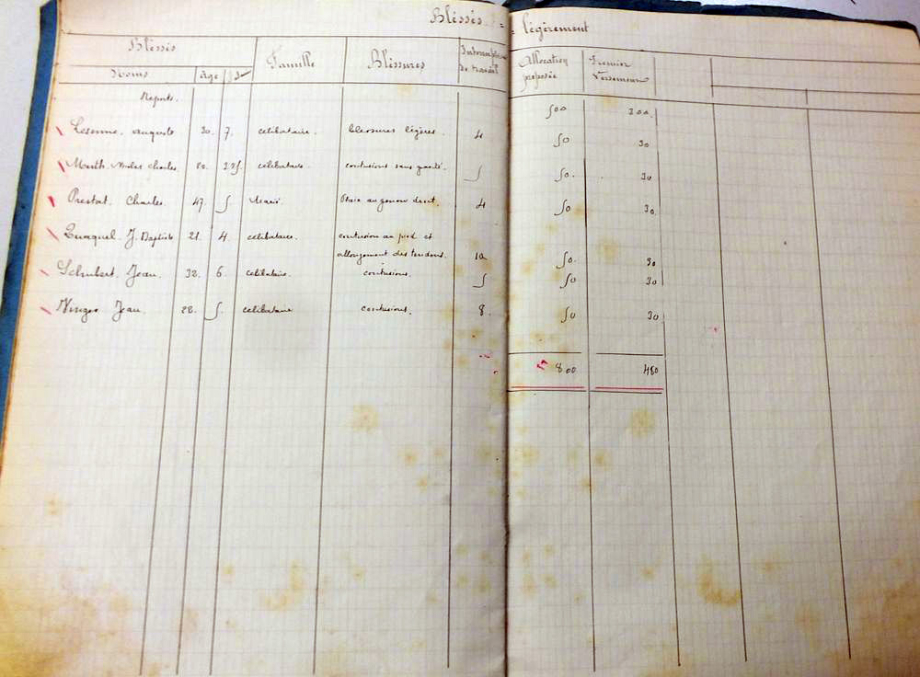 Blessés = légèrement
Blessés Famille Blessures Interruption de travail Allocation proposée Premier Versement
Noms Age
Reports. 500 300
auguste 30. 7. celibataire. blessures légères. 4 50 30
Charles celibataire. contusions sans gravité. 5 50. 30
Prestat. Charles. 47. 5. Marié. Plaie au genou droit. 4 50 30.
J. Baptiste 21. 4. celibataire. contusion au pied et
allongement des tendons. 10. 50. 30
Schubert. Jean. 32. 6. celibataire. contusions. 5 50 30
Jean. 28. 5. celibataire contusions. 8. 50 30
800 480